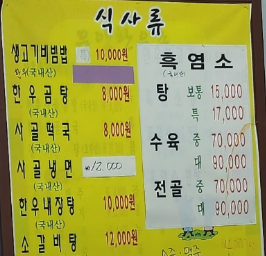 식사류
생고기비빔밥 10,000원
한우(국내산)
한우곰탕 8,000원
(국내산)
사골떡국 8,000원
(국내산)
사골냉면 ₩12,000
(국내산)
한우내장탕 10,000원
(국내산)
소갈비탕 12,000원
흑염소
(국내산)
탕 보통 15,000
특 17,000
수육 중 70,000
대 90,000
전골 중 70,000
대 90,000